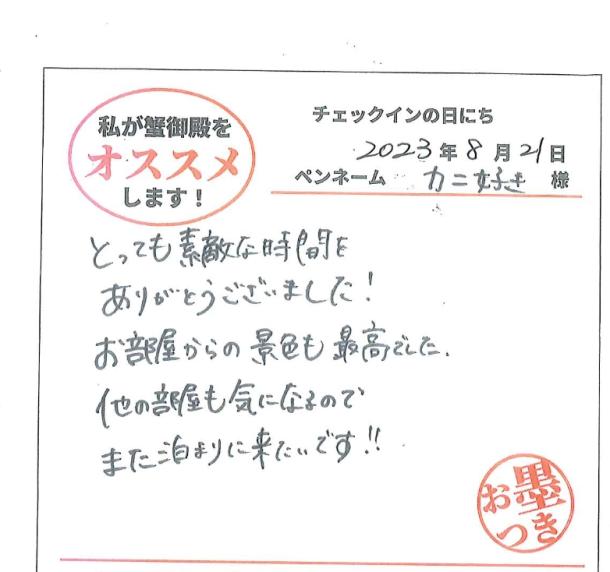 私が蟹御殿を
オススメ
します！
チェックインの日にち
2023年8月21日
ペンネーム カニ好き 様
とっても素敵な時間を
ありがとうございました！
お部屋からの景色も最高でした.
他の部屋も気になるので
また泊まりに来たいです!!
お墨
つき